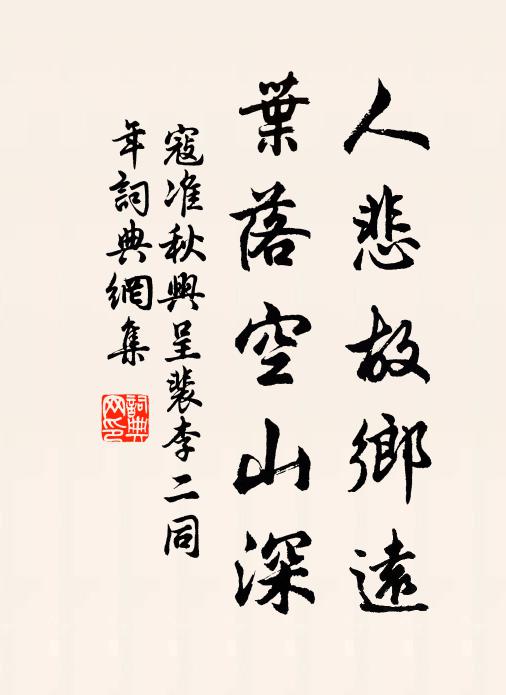 人悲故鄉遠
葉落空山深
寇准秋興呈裴李二同
年詞典網集
詞典
网印